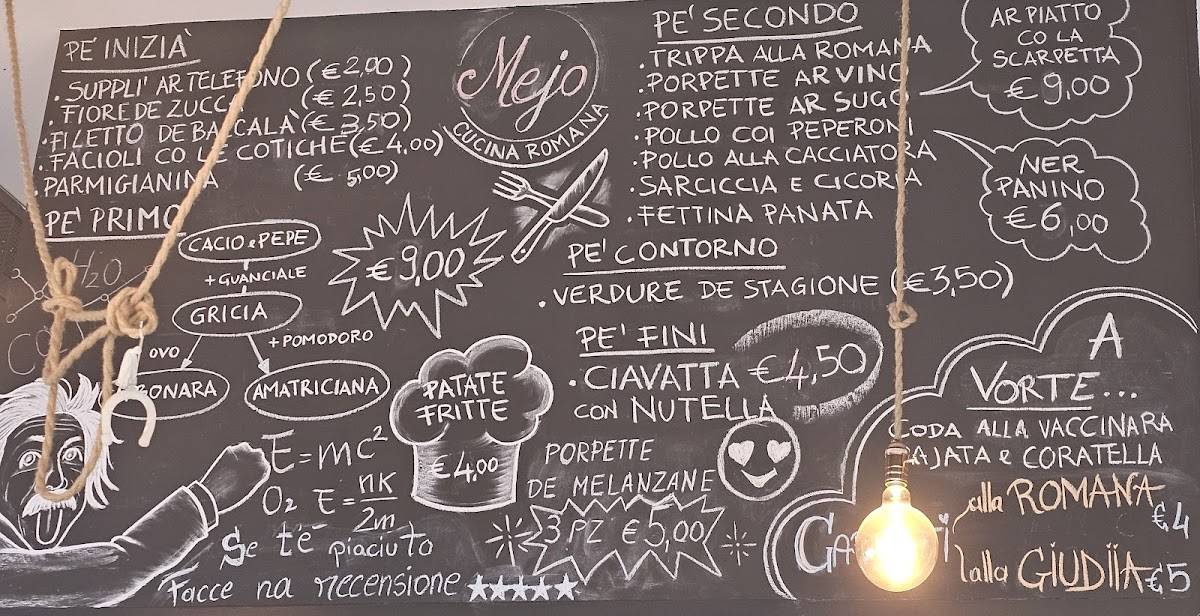 PE' INIZIÀ
. SUPPLI' AR TELEFONO (€2,00)
. FIORE DE ZUCCA (€ 2,50)
. FILETTO DE BACCALÀ (€ 3,50)
. FACIOLI CO LE COTICHE (€ 4,00)
. PARMIGIANINA (€ 5,00)
PE' PRIMO
CACIO e PEPE
+ GUANCIALE
GRICIA
+ POMODORO
OVO
AMATRICIANA
€ 9,00
H2O
Mejo
CUCINA ROMANA
PATATE
FRITTE
€ 4,00
E=mc²
O2 E = nk/2m
Se te piaciuto
Facce na recensione ★★★★★
PE' SECONDO
. TRIPPA ALLA ROMANA
. PORPETTE AR VINO
. PORPETTE AR SUGO
. POLLO COI PEPERONI
. POLLO ALLA CACCIATORA
. SARCICCIA E CICORIA
. FETTINA PANATA
AR PIATTO
CO LA
SCARPETTA
€ 9,00
NER
PANINO
€ 6,00
PE' CONTORNO
. VERDURE DE STAGIONE (€3,50)
PE' FINI
. CIAVATTA €4,50
CON NUTELLA
PORPETTE
DE MELANZANE
3 PZ €5,00
A
VORTE...
CODA ALLA VACCINARA
PAJATA e CORATELLA
alla ROMANA €4
alla GIUDIIA €5